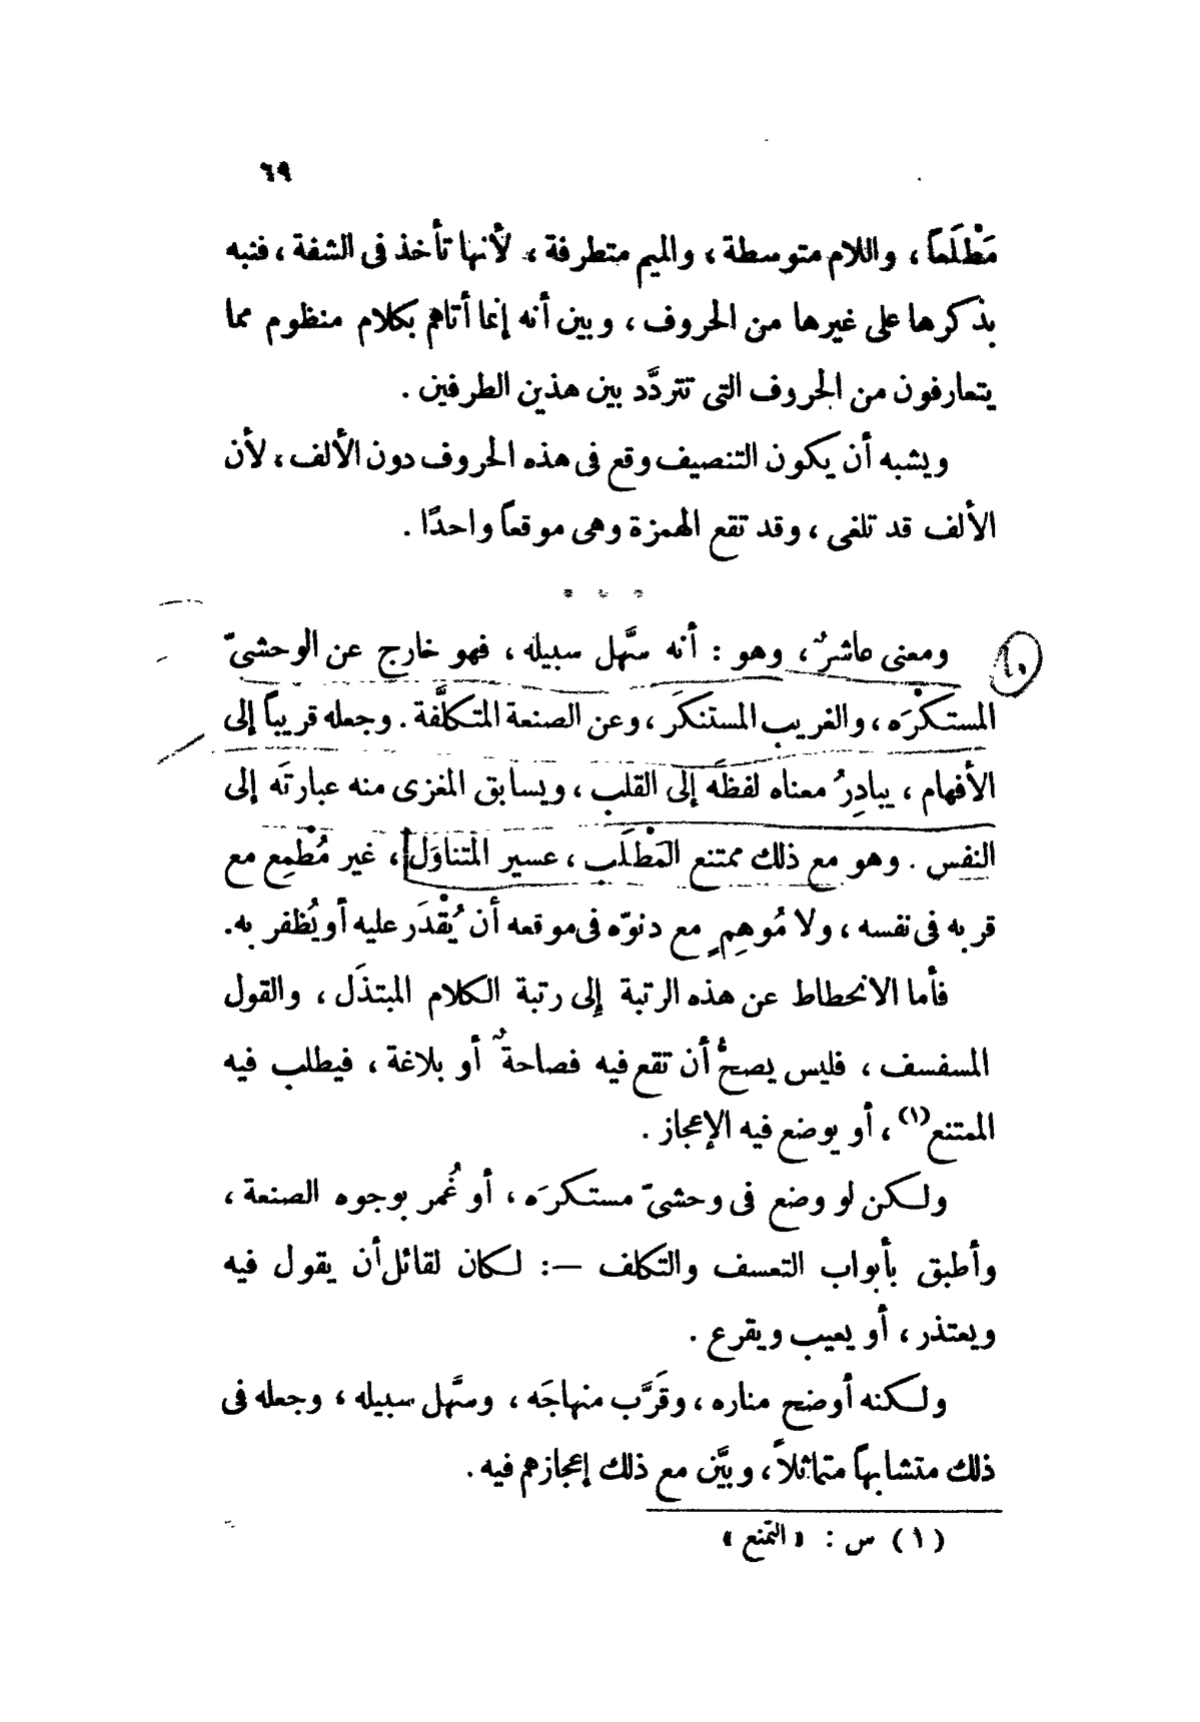 ٦٩
مَطْلَعاً ، واللام متوسطة ، والميم متطرفة ، لأنها تأخذ فى الشفة ، فنبه
بذكرها على غيرها من الحروف ، وبين أنه إنما أتاهم بكلام منظوم مما
يتعارفون من الحروف التى تتردَّد بين هذين الطرفين .
ويشبه أن يكون التنصيف وقع فى هذه الحروف دون الألف ، لأن
الألف قد تلغى ، وقد تقع الهمزة وهى موقعاً واحدًا .
* * *
١٠
ومعنى عاشرٌ ، وهو : أنه سهَّل سبيله ، فهو خارج عن الوحشىّ
المستكْرَه ، والغريب المستنكَر ، وعن الصنعة المتكلَّفة . وجعله قريباً إلى
الأفهام ، يبادِرُ معناه لفظَه إلى القلب ، ويسابق المغزى منه عبارتَه إلى
النفس . وهو مع ذلك ممتنع المَطْلَب ، عسير المتناوَل ، غير مُطْمِع مع
قربه فى نفسه ، ولا مُوهِمٍ مع دنوّه فى موقعه أن يُقْدَر عليه أو يُظفر به.
فأما الانحطاط عن هذه الرتبة إلى رتبة الكلام المبتذَل ، والقول
المسفسف ، فليس يصحُّ أن تقع فيه فصاحةٌ أو بلاغة ، فيطلب فيه
الممتنع(١) ، أو يوضع فيه الإعجاز .
ولكن لو وضع فى وحشىّ مستكرَه ، أو غُمر بوجوه الصنعة ،
وأطبق بأبواب التعسف والتكلف —: لكان لقائل أن يقول فيه
ويعتذر ، أو يعيب ويقرع .
ولكنه أوضح مناره ، وقَرَّب منهاجَه ، وسهَّل سبيله ، وجعله فى
ذلك متشابهاً متماثلاً ، وبيَّن مع ذلك إعجازهم فيه .
(١) س : « التمنع »